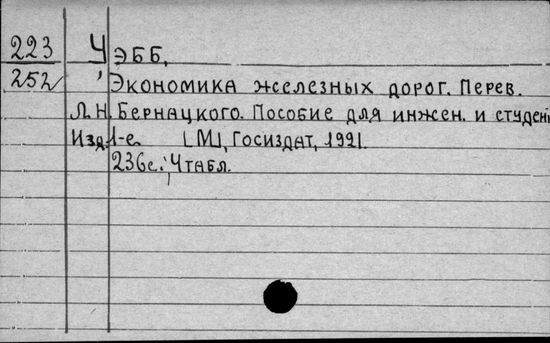 223 Ч ЭББ,
252 Экономика железных дорог. Перев.
Л.Н. Бернацкого. Пособие для инжен. и студент
Изд. 1-е. [М], Госиздат, 1921.
236с.; 4 табл.